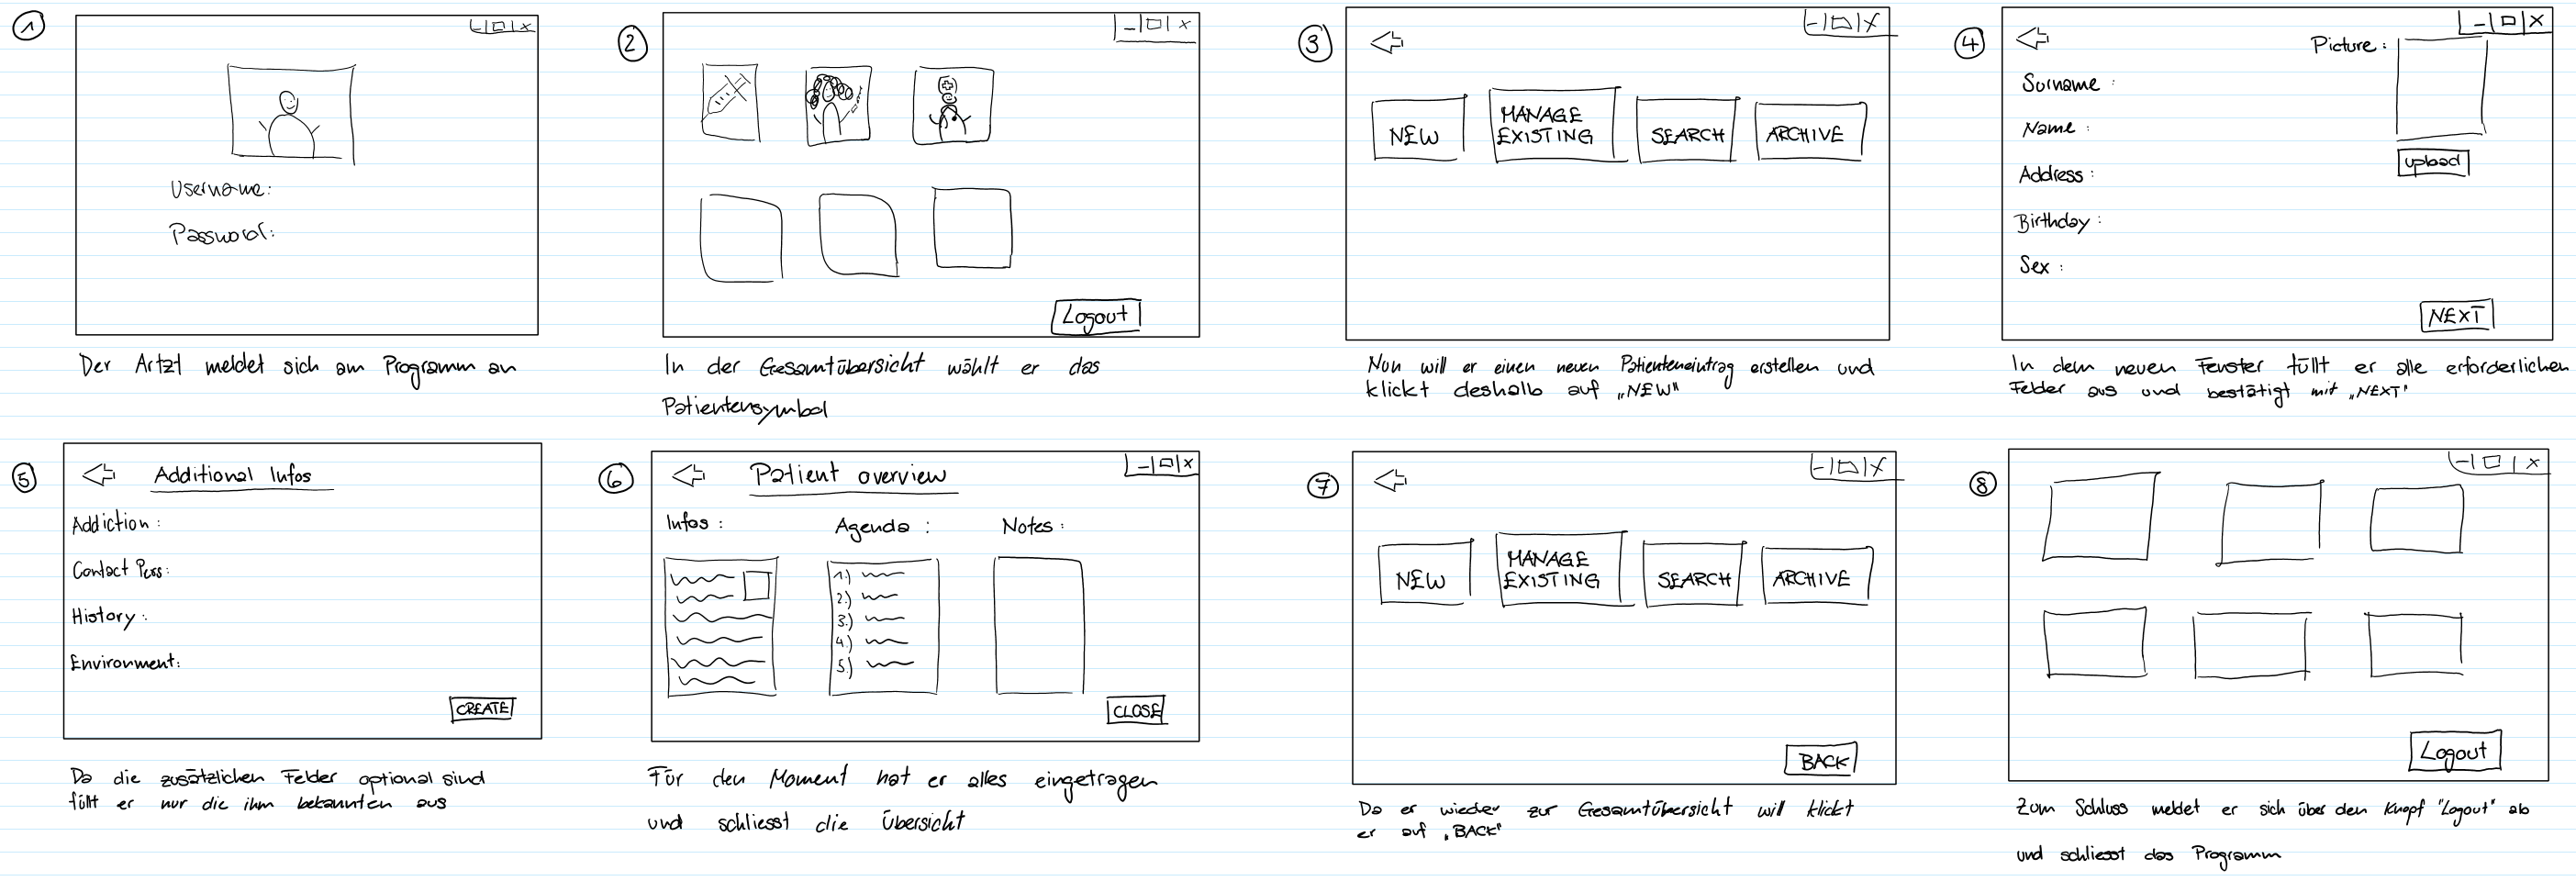 1
Username:
Password:
Der Artzt meldet sich am Programm an
2
Logout
In der Gesamtübersicht wählt er das
Patientensymbol
3
NEW
MANAGE
EXISTING
SEARCH
ARCHIVE
Nun will er einen neuen Patienteneintrag erstellen und
klickt deshalb auf „NEW"
4
Picture:
Surname :
Name :
Address :
Birthday :
Sex :
upload
NEXT
In dem neuen Fenster füllt er alle erforderlichen
Felder aus und bestätigt mit „NEXT"
5
Additional Infos
Addiction :
Contact Pers:
History :
Environment:
CREATE
Da die zusätzlichen Felder optional sind
füllt er nur die ihm bekannten aus
6
Patient overview
Infos :
Agenda :
Notes :
1.)
2.)
3.)
4.)
5.)
CLOSE
Für den Moment hat er alles eingetragen
und schliesst die Übersicht
7
NEW
MANAGE
EXISTING
SEARCH
ARCHIVE
BACK
Da er wieder zur Gesamtübersicht will klickt
er auf „BACK"
8
Logout
Zum Schluss meldet er sich über den Knopf "Logout" ab
und schliesst das Programm